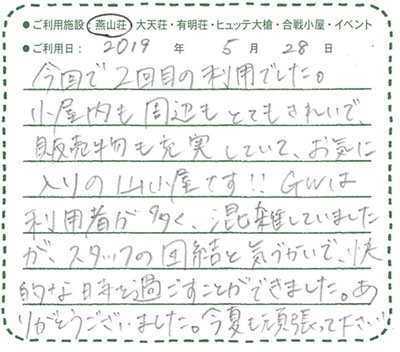 ●ご利用施設 燕山荘・大天荘・有明荘・ヒュッテ大槍・合戦小屋・イベント
●ご利用日： 2019 年 5 月 28 日
今回で2回目の利用でした。
小屋内も周辺もとてもきれいで、
販売物も充実していて、お気に
入りの山小屋です!! GWは
利用者が多く、混雑していました
が、スタッフの団結と気づかいで、快
的な時を過ごすことができました。あ
りがとうございました。今夏も頑張って下さい